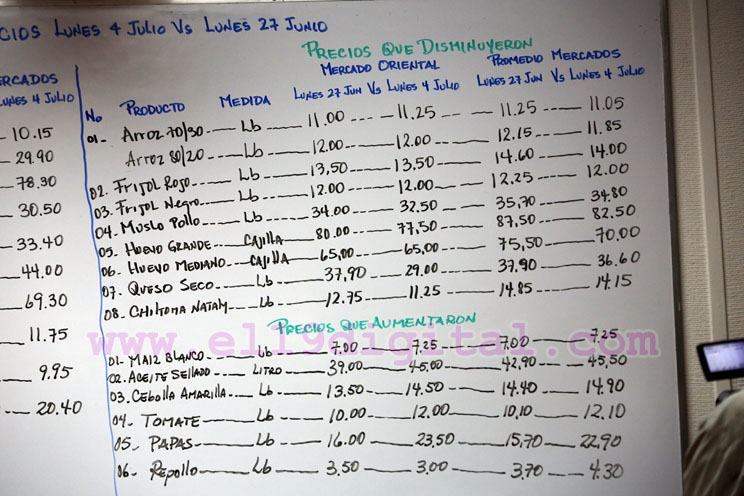 CIOS LUNES 4 JULIO VS LUNES 27 JUNIO
ERCADOS
LUNES 4 JULIO
10.15
29.90
78.30
30.50
33.40
44.00
69.30
11.75
9.95
20.40
PRECIOS QUE DISMINUYERON
MERCADO ORIENTAL PROMEDIO MERCADOS
No PRODUCTO MEDIDA LUNES 27 JUN VS LUNES 4 JULIO LUNES 27 JUN VS LUNES 4 JULIO
01- Arroz 70/30 Lb 11.00 11.25 11.25 11.05
Arroz 80/20 Lb 12.00 12.00 12.15 11.85
02. Frijol Rojo Lb 13,50 13.50 14.60 14.00
03. Frijol Negro Lb 12.00 12.00 12.25 12.00
04. Muslo Pollo Lb 34.00 32.50 35,70 34.80
05. HUEVO GRANDE CAJILLA 80.00 77,50 87,50 82.50
06. HUEVO MEDIANO CAJILLA 65,00 65,00 75,50 70.00
07. QUESO SECO Lb 37,90 29.00 37.90 36.60
08. CHILTOMA NATAM Lb 12.75 11.25 14.85 14.15
PRECIOS QUE AUMENTARON
www.el19digital.com
01- MAIZ BLANCO Lb 7.00 7.25 7.00 7.25
02. ACEITE SELLADO LITRO 39,00 45,00 42,90 45,50
03. CEBOLLA AMARILLA Lb 13.50 14.50 14.40 14.90
04- TOMATE Lb 10.00 12.00 10,10 12.10
05. PAPAS Lb 16.00 23,50 15,70 22,90
06- REPOLLO Lb 3.50 3.00 3.70 4.30